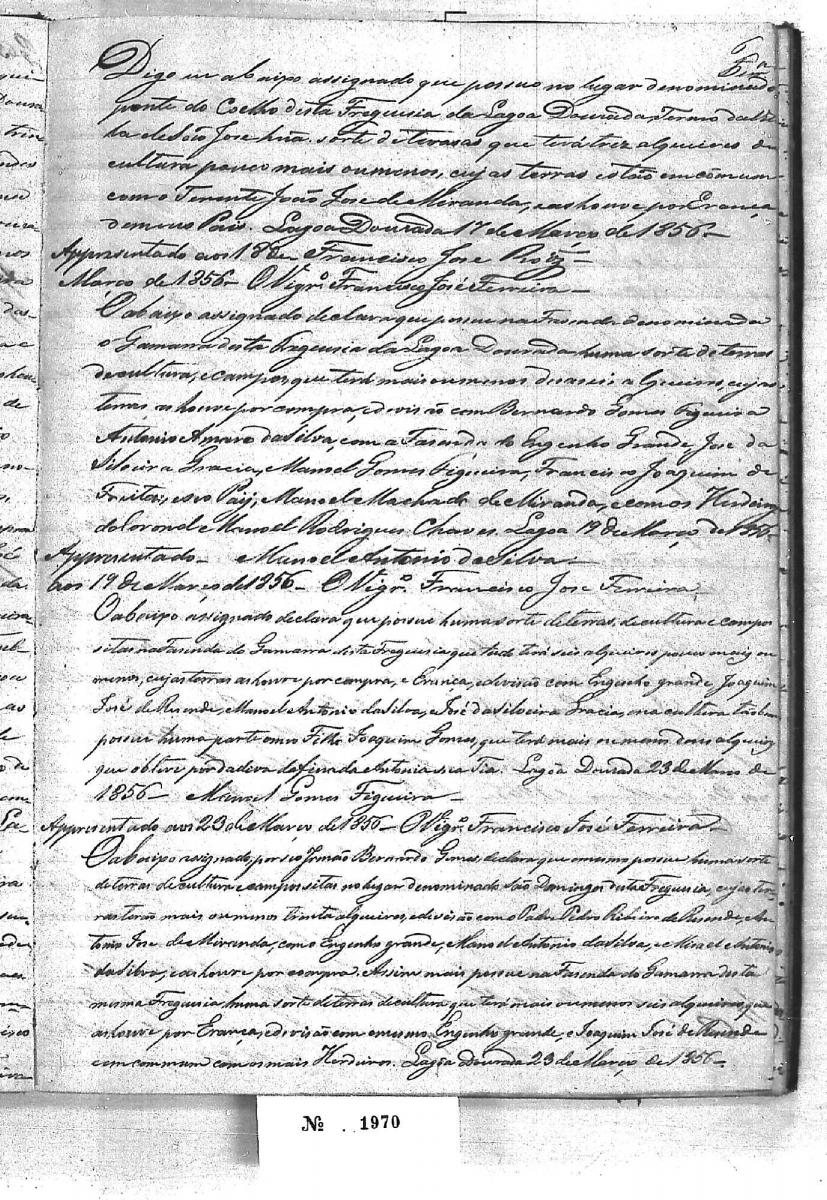 Digo eu abaixo assignado que possuo no lugar denominado
ponte do Coelho desta Freguesia da Lagoa Dourada, Termo da Vil
la de São José huã sorte de terras que terá trez alqueires de
cultura pouco mais ou menos, cujas terras estão em cõmum
com o Tenente João José de Miranda, e as houve por Erança
de meus Pais. Lagoa Dourada 17 de Março de 1856 —
Appresentado aos 18 de Francisco Jose Roiz
Março de 1856 — O Vigr.º Francisco José Ferreira —
O abaixo assignado declara que possue na Fasenda denominada
o Gamarra desta Freguesia da Lagoa Dourada huma sorte de terras
de cultura, e campos, que terá mais ou menos desaseis alqueires, cujas
terras as houve por compra, e devisão com Bernardo Gomes Figueira
Antonio Amaro da Silva, com a Fasenda do Engenho Grande, José da
Silveira Gracia, Manoel Gomes Figueira, Francisco Joaquim de
Freitas, e seo Pay, Manoel Machado de Miranda, e com os Herdeiros
do Coronel Manoel Rodrigues Chaves. Lagoa 19 de Março de 1856
Appresentado — Manoel Antonio da Silva —
aos 19 de Março de 1856 — O Vigr.º Francisco Jose Ferreira
O abaixo assignado declara que possue huma sorte de terras, de cultura e campos
sitas na Fasenda do Gamarra desta Freguesia que tudo terá seis alqueires pouco mais ou
menos, cujas terras as houve por compra, e Erança, e devisão com Engenho grande, Joaquim
José de Resende, e Manoel Antonio da Silva, e José da Silveira Gracia, e na cultura tãobem
possue huma parte em seo Filho Joaquim Gomes, que terá mais ou menos dous alqueires
que obteve por dadiva da finada Antonia sua Tia. Lagôa Dourada 23 de Março de
1856 — Manoel Gomes Figueira —
Appresentado aos 23 de Março de 1856 — O Vigr.º Francisco José Ferreira —
O abaixo assignado, por seo Irmão Bernardo Gomes, declara que o mesmo possue huma sorte
de terras de cultura e campos sitas no lugar denominado São Domingos desta Freguesia, cujas ter
ras terão mais ou menos trinta alqueires, e devisão com o Padre Pedro Ribeiro de Resende, An
tonio Jose de Miranda, com o Engenho grande, Manoel Antonio da Silva, e Antonio
da Silva, e as houve por compra. Assim mais possue na Fasenda do Gamarra desta
mesma Freguesia, huma sorte de terras de cultura que terá mais ou menos seis alqueires, que
as houve por Erança, e devisão com o mesmo Engenho grande, e Joaquim José de Resende
em commum com os mais Herdeiros. Lagôa Dourada 23 de Março de 1856 —
Nº 1970